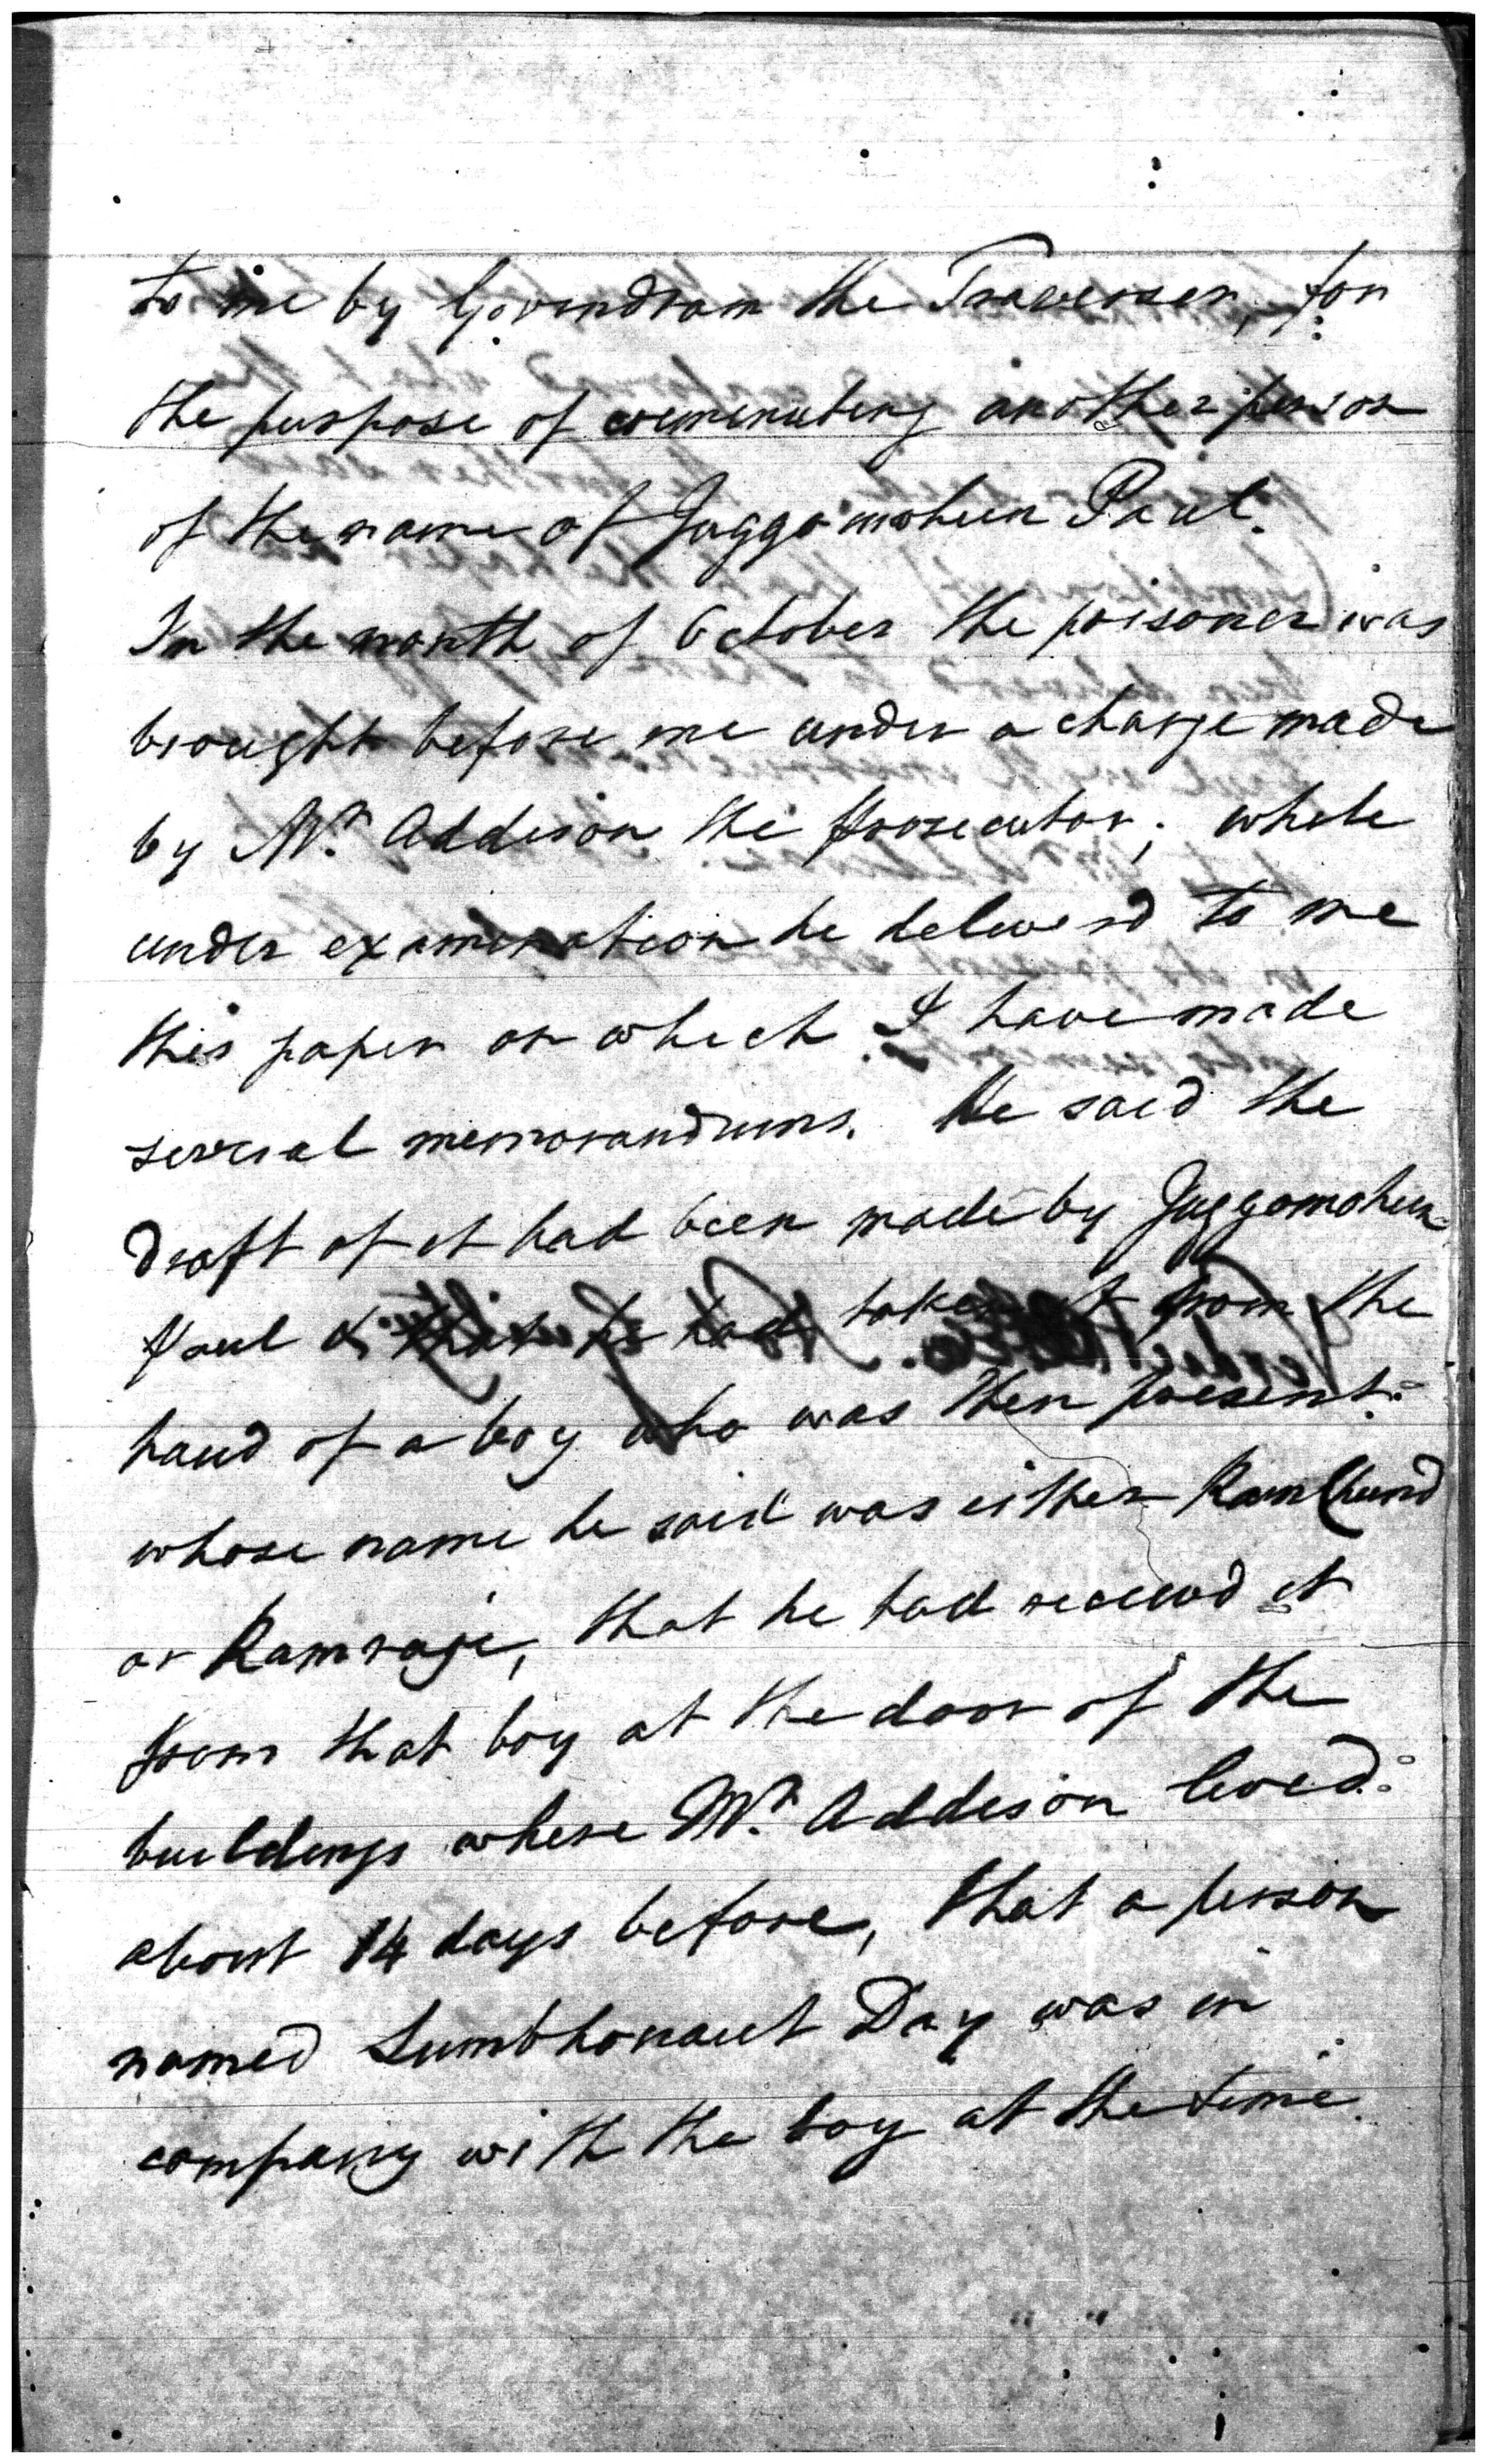 to me by Govindram the Traverser, for
the purpose of criminating another person
of the name of Juggomohun Paul.
In the month of October the prisoner was
brought before me under a charge made
by Mr. Addison the prosecutor; while
under examination he deliverd to me
this paper on which I have made
several memorandums. He said the
draft of it had been made by Juggomohun
Paul & that he had taken it from the
hand of a boy who was then present
whose name he said was either RamChund
or Ramraje, that he had receivd it
from that boy at the door of the
buildings where Mr. Addison lived
about 14 days before, that a person
named Sumbhonaut Day was in
company with the boy at the time.